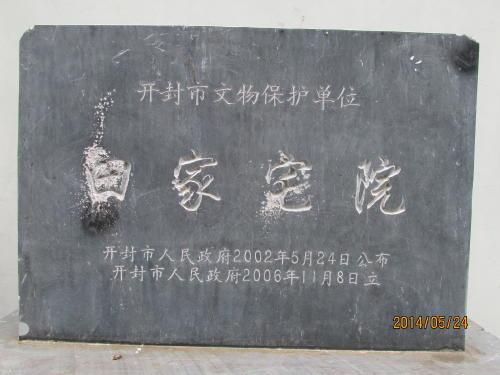 开封市文物保护单位
田家宅院
开封市人民政府2002年5月24日公布
开封市人民政府2006年11月8日立
2014/05/24